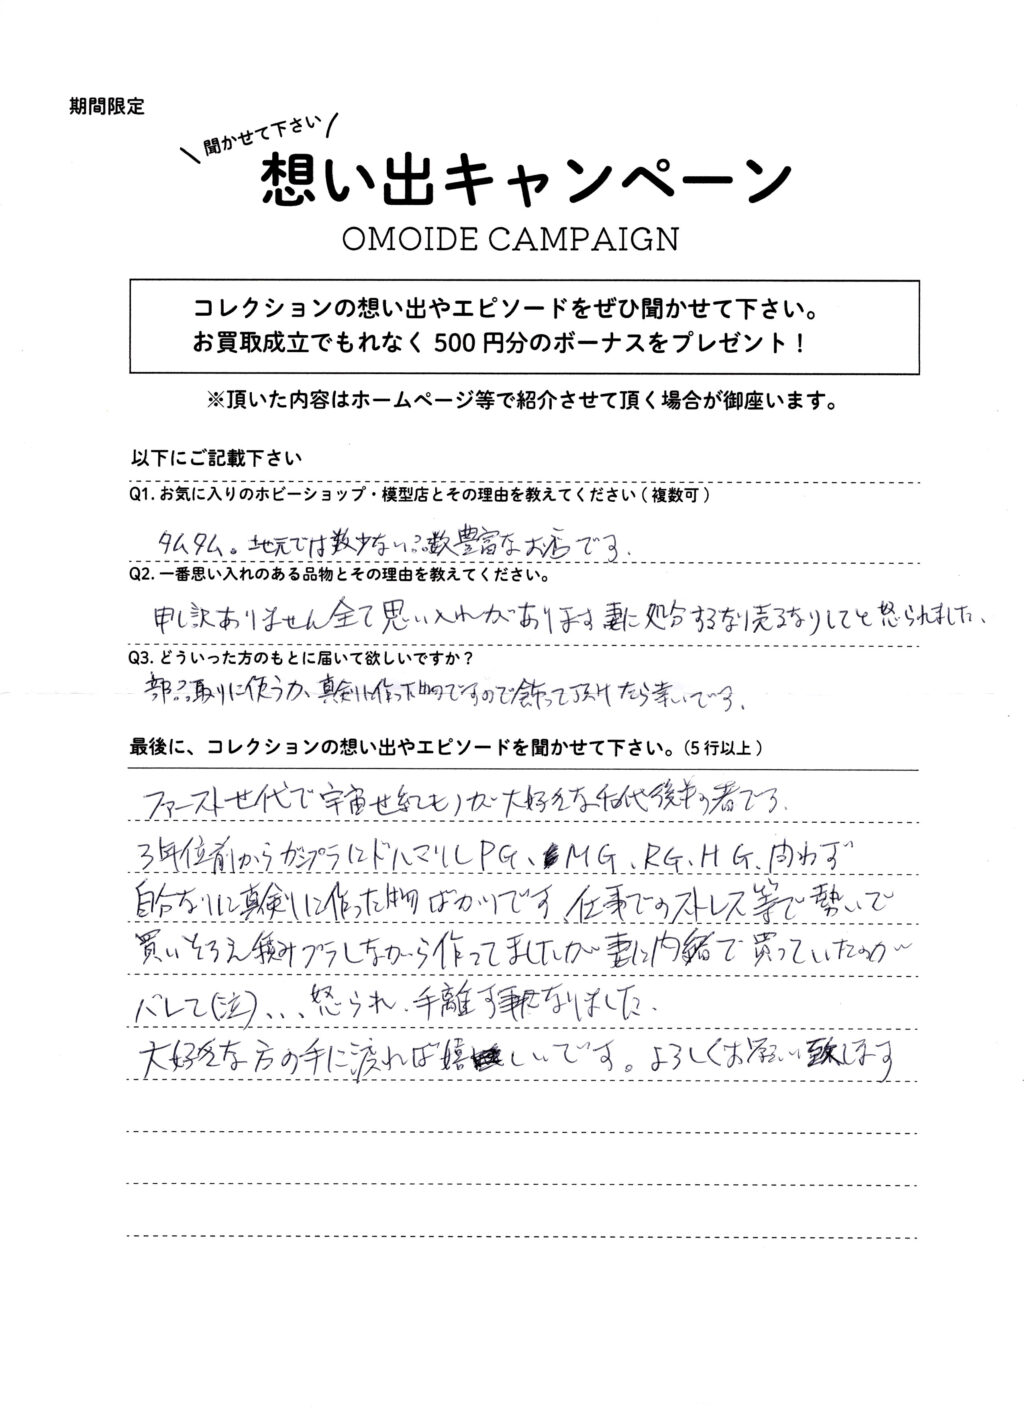 期間限定
聞かせて下さい
想い出キャンペーン
OMOIDE CAMPAIGN
コレクションの想い出やエピソードをぜひ聞かせて下さい。
お買取成立でもれなく 500 円分のボーナスをプレゼント！
※頂いた内容はホームページ等で紹介させて頂く場合が御座います。
以下にご記載下さい
Q1. お気に入りのホビーショップ・模型店とその理由を教えてください ( 複数可 )
タムタム。地元では数少ない品数豊富なお店です.
Q2. 一番思い入れのある品物とその理由を教えてください。
申し訳ありません全て思い入れがあります妻に処分するなり売るなりしてと怒られました、
Q3. どういった方のもとに届いて欲しいですか？
部品取りに使うか、真剣に作った物ですので飾って頂けたら幸いです.
最後に、コレクションの想い出やエピソードを聞かせて下さい。(5 行以上 )
ファースト世代で宇宙世紀ものが大好きな40代後半の者です.
3年位前からガンプラにドハマりしPG、MG、RG、HG、問わず
自分なりに真剣に作った物ばかりです、仕事でのストレス等で勢いで
買いそろえ積みプラしながら作ってましたが妻に内緒で買っていたのが
バレて(泣)、、、怒られ、手離す事になりました.
大好きな方の手に渡れば嬉しいです。よろしくお願い致します